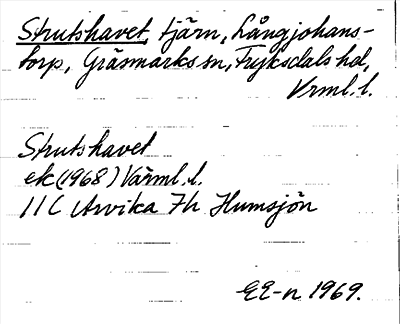 Strutshavet, tjärn, Långjohans-
torp, Gräsmarks sn, Fryksdals hd,
Vrml. l.
Strutshavet
ek (1968) Värml. l.
11 C Arvika 7h Humsjön
EE-n 1969.